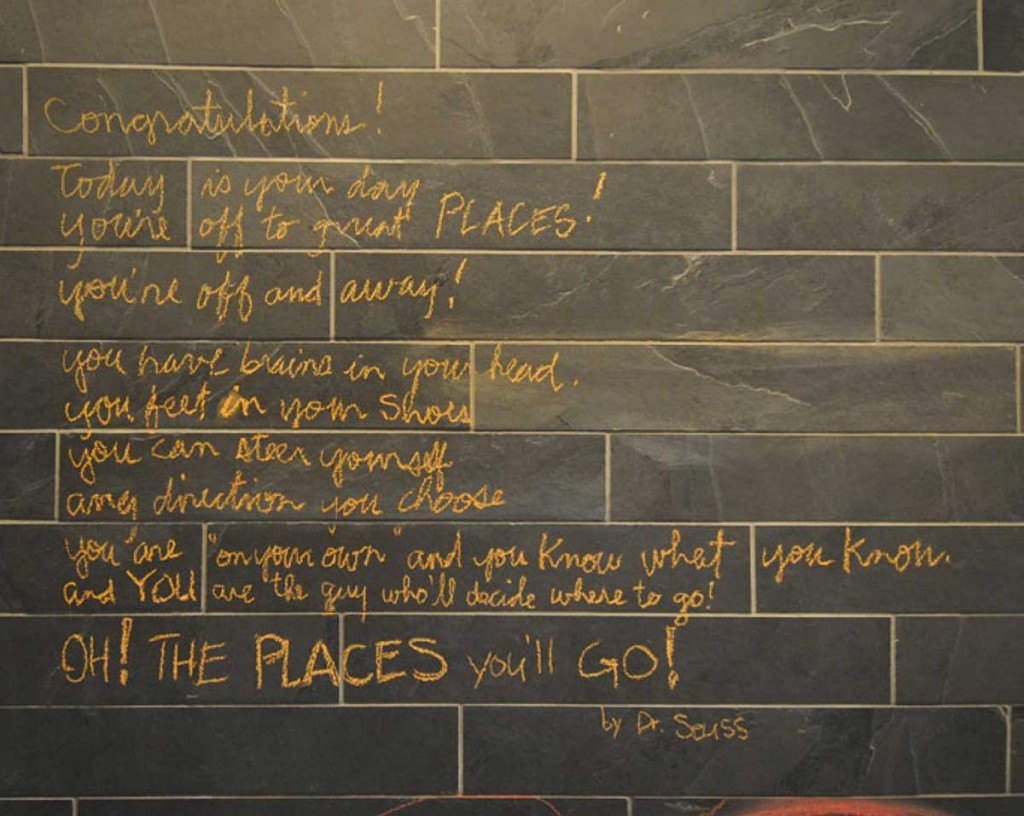 Congratulations!
Today is your day
you're off to great PLACES!
you're off and away!
you have brains in your head.
you feet in your shoes
you can steer yourself
any direction you choose
you are "on your own" and you know what you know.
and YOU are the guy who'll decide where to go!
OH! THE PLACES you'll GO!
by Dr. Seuss